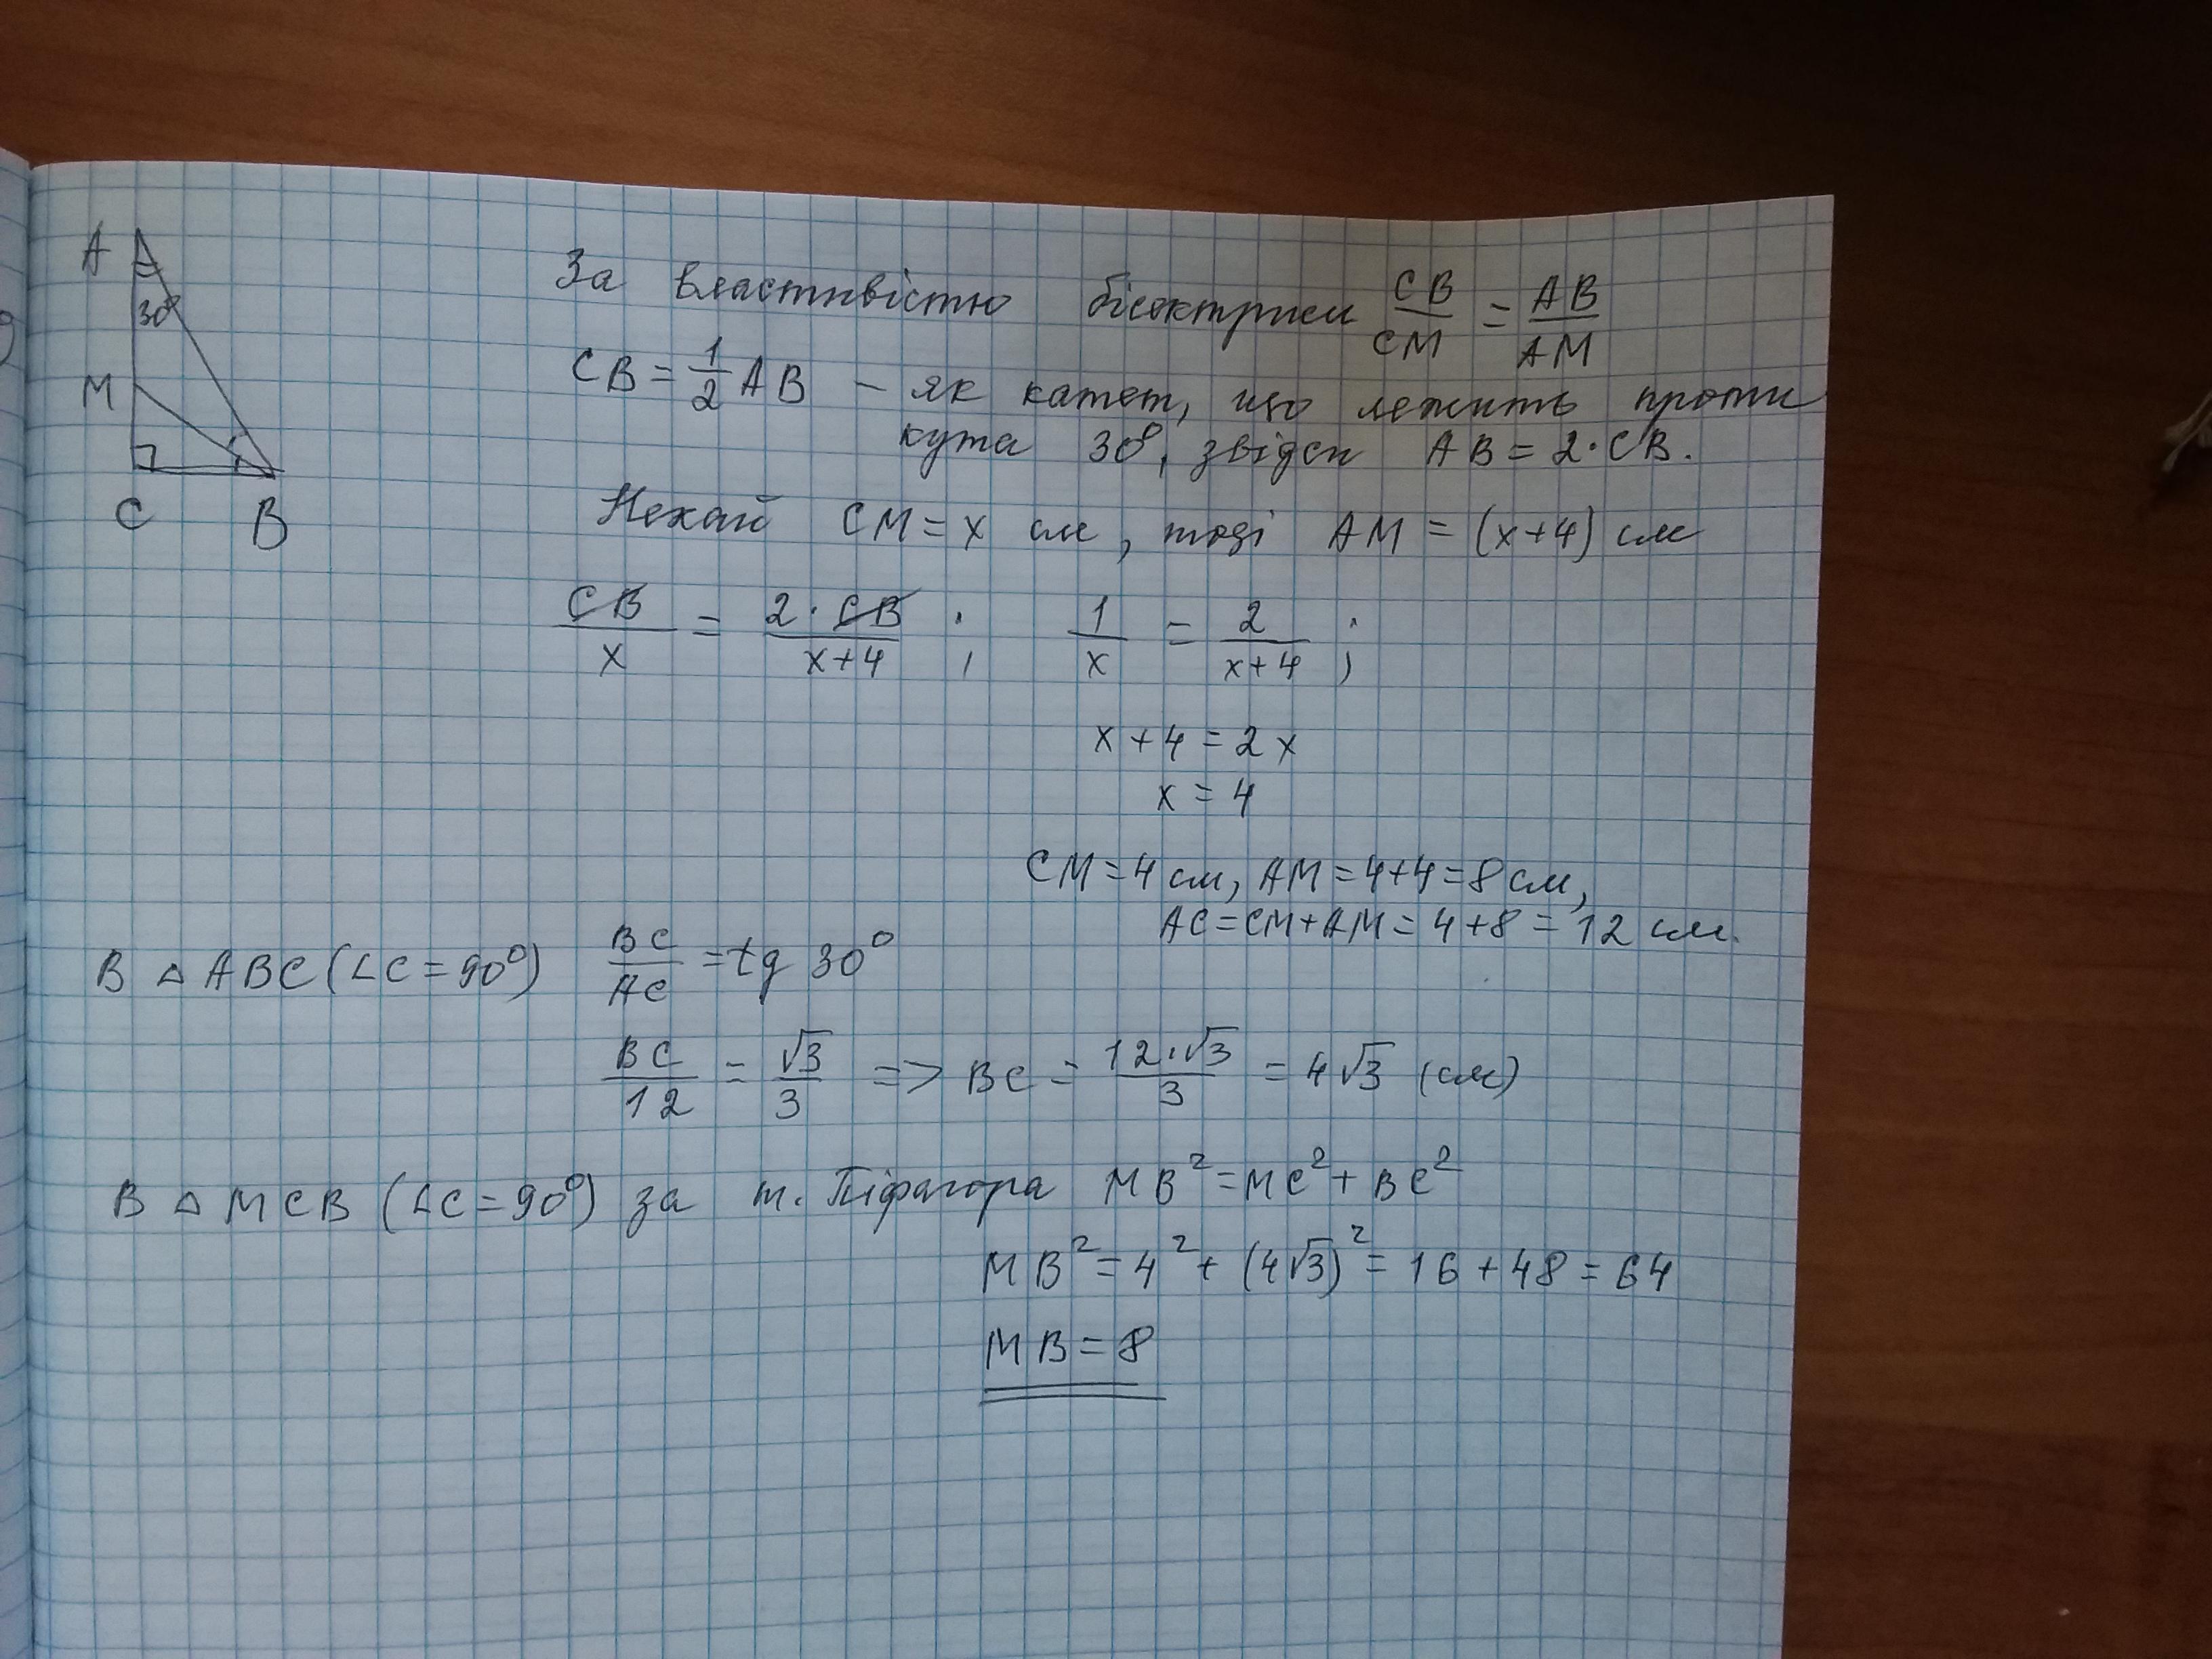 A
30°
M
C B
За властивістю бісектриси CB/CM = AB/AM
CB = 1/2 AB – як катет, що лежить проти
кута 30°, звідси AB = 2·CB.
Нехай CM = x см, тоді AM = (x+4) см
CB/x = 2·CB/x+4 ; 1/x = 2/x+4 ;
x + 4 = 2x
x = 4
CM = 4 см, AM = 4+4 = 8 см,
AC = CM + AM = 4 + 8 = 12 см.
В △ ABC (∠C = 90°) BC/AC = tg 30°
BC/12 = √3/3 => BC = 12·√3/3 = 4√3 (см)
В △ MCB (∠C = 90°) за т. Піфагора MB² = MC² + BC²
MB² = 4² + (4√3)² = 16 + 48 = 64
MB = 8